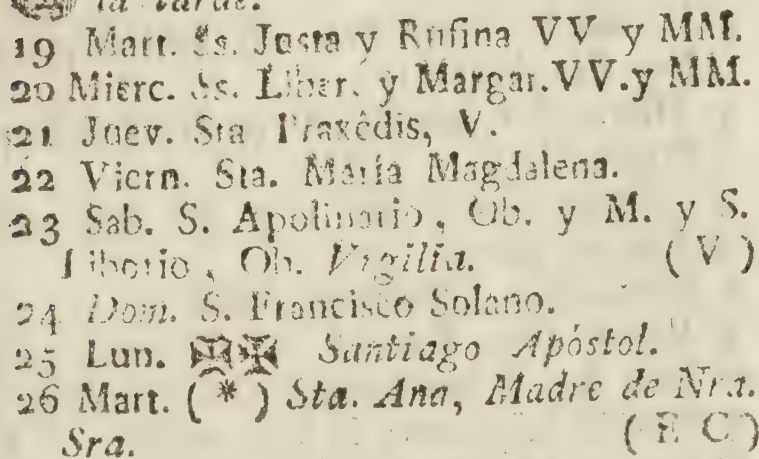 la tarde.
19 Mart. Ss. Justa y Rufina VV y MM.
20 Mierc. Ss. Liber. y Margar. VV. y MM.
21 Juev. Sta Praxêdis, V.
22 Viern. Sta. María Magdalena.
23 Sab. S. Apolinario, Ob. y M. y S.
Liborio, Ob. Vigilia. (V)
24 Dom. S. Francisco Solano.
25 Lun. ✠✠ Santiago Apóstol.
26 Mart. (*) Sta. Ana, Madre de Nra.
Sra. (E C)